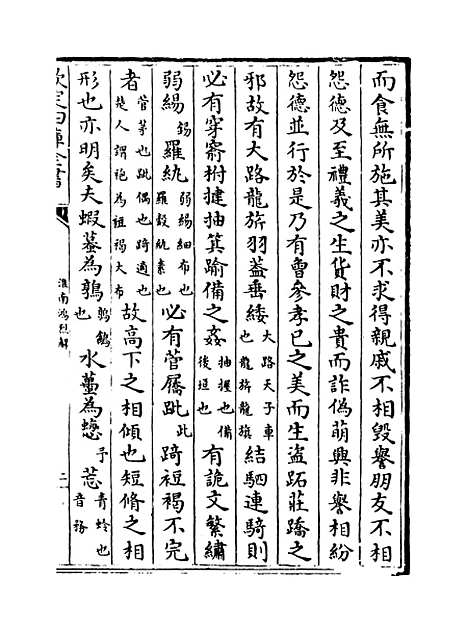 而食無所施其美亦不求得親戚不相毀譽朋友不相
怨德及至禮義之生貨財之貴而詐偽萌興非譽相紛
怨德並行於是乃有曾參孝已之美而生盜跖莊蹻之
邪故有大路龍旂羽蓋垂緌大路天子車也龍旂龍旗結駟連騎則
必有穿窬拊揵抽箕踰備之姦抽握也備後垣也有詭文繁繡
弱緆錫羅紈弱緆細布也羅縠紈素也必有菅屩跐此踦短褐不完
者菅茅也跐偶也踦適也楚人謂袍為裋褐大布故高下之相傾也短脩之相
形也亦明矣夫蝦蟇為鶉鶉鷃也水蠆為蟌予惹青蛉也音務
欽定四庫全書
淮南鴻烈解
二